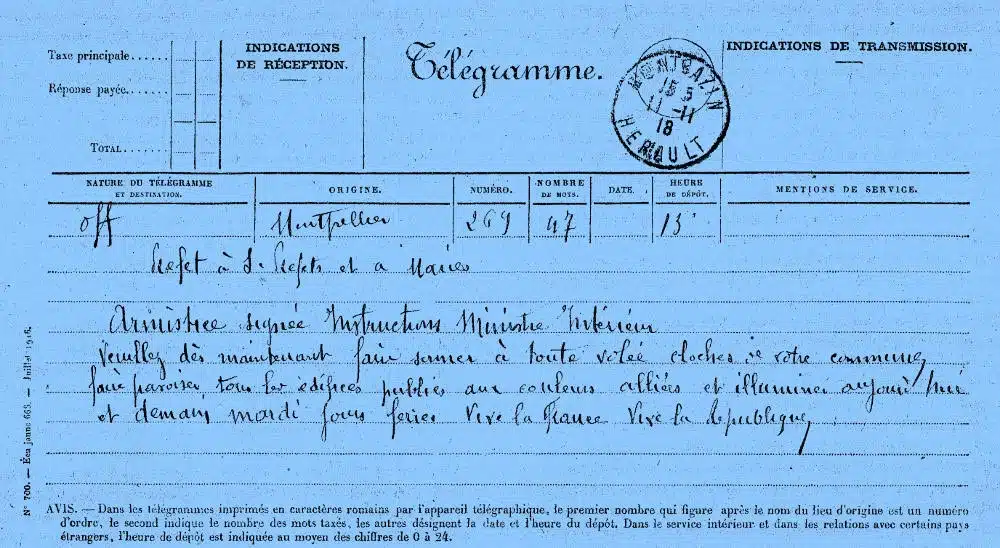 Taxe principale......
Réponse payée.......
TOTAL.......
INDICATIONS
DE RÉCEPTION.
Télégramme.
MONTBAZIN
15 5
11 -11
18
HERAULT
INDICATIONS DE TRANSMISSION.
NATURE DU TÉLÉGRAMME
ET DESTINATION.
ORIGINE.
NUMÉRO.
NOMBRE
DE MOTS.
DATE.
HEURE
DE DÉPÔT.
MENTIONS DE SERVICE.
off Montpellier 269 47 13
Prefet à S. Prefets et a Maires
Armistice signée Instructions Ministre Intérieur
Veuillez dès maintenant faire sonner à toute volée cloches de votre commune,
faire pavoiser tous les edifices publics aux couleurs alliés et illuminer aujourd'hui
et demain mardi jours feries Vive la France Vive la Republique,
N° 700. — Éca janne 668. — Juillet 1916.
AVIS. — Dans les télégrammes imprimés en caractères romains par l'appareil télégraphique, le premier nombre qui figure après le nom du lieu d'origine est un numéro
d'ordre, le second indique le nombre des mots taxés, les autres désignent la date et l'heure du dépôt. Dans le service intérieur et dans les relations avec certains pays
étrangers, l'heure de dépôt est indiquée au moyen des chiffres de 0 à 24.